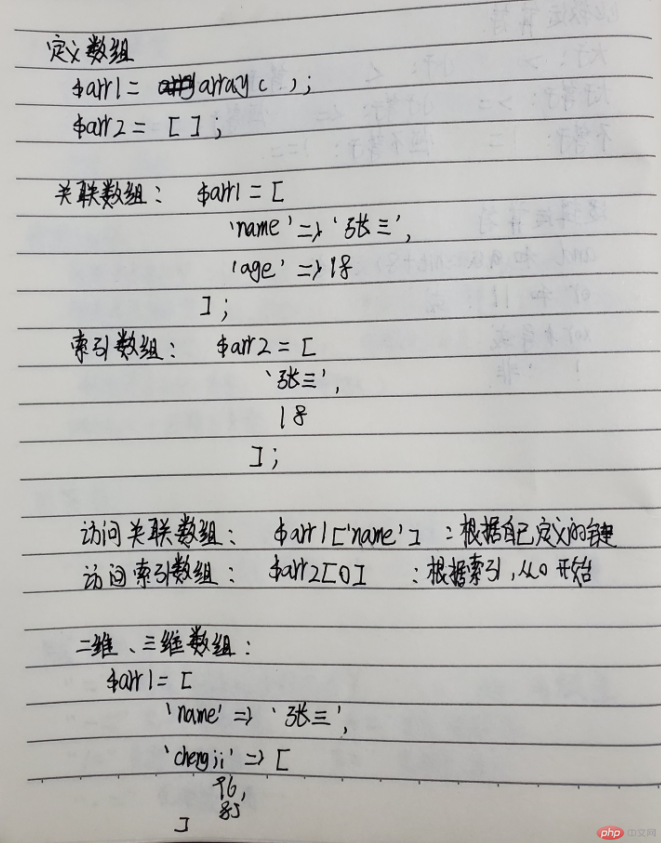 定义数组
$arr1 = array( );
$arr2 = [ ];
关联数组： $arr1 = [
'name' => '张三',
'age' => 18
];
索引数组： $arr2 = [
'张三',
18
];
访问关联数组： $arr1['name'] ：根据自己定义的键
访问索引数组： $arr2[0] ：根据索引，从0开始
二维、三维数组：
$arr1 = [
'name' => '张三',
'chengji' => [
96,
85
]
php 中文网